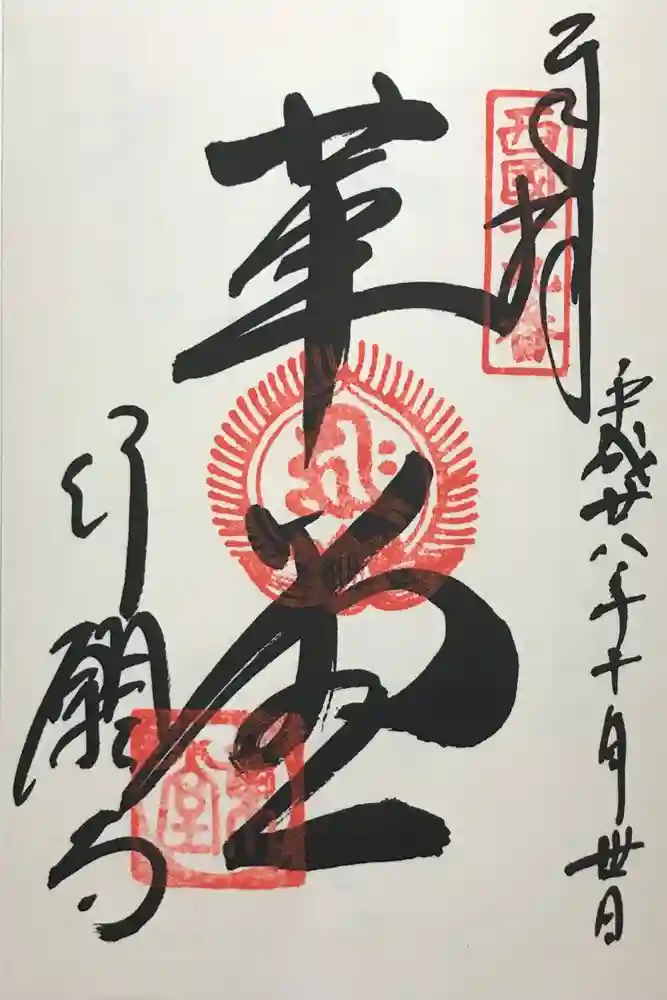 奉拝
西國十九番
平成廿八年十月卅日
革堂
行願寺
革堂